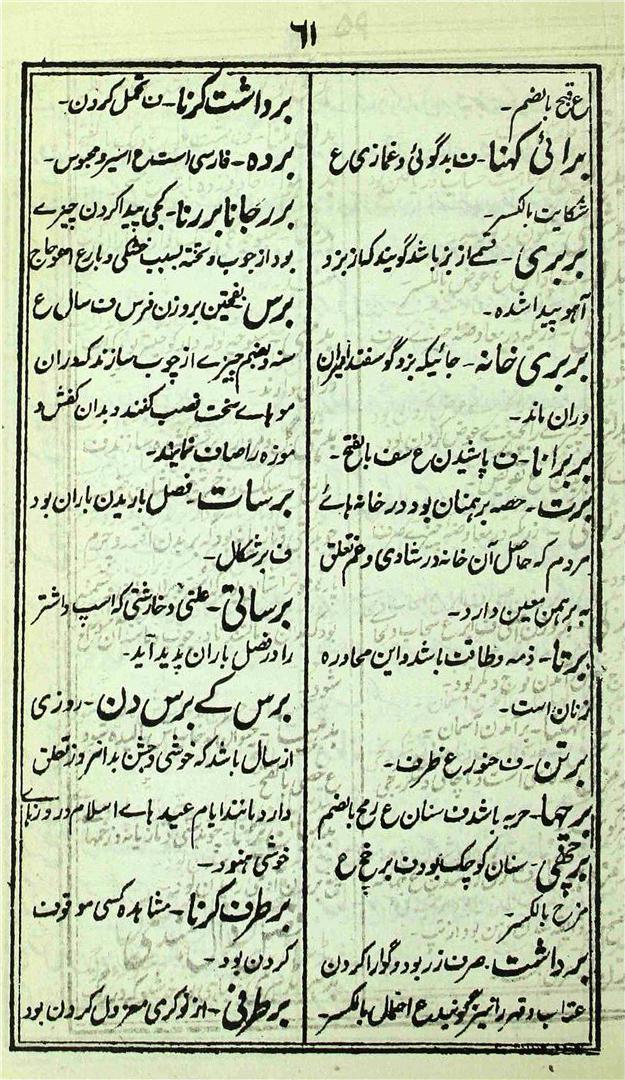 ٦١
ع قبح بالضم۔
برائی کہنا۔ ف بدگوئی و غمازی ع
شکایت بالکسر۔
بربری۔ قسمے از بز باشد گویند کہ از بز و
آہو پیدا شدہ۔
بربری خانہ۔ جائیکہ بز و گوسفند ایران
دران ماند۔
بربرانا۔ ف پاشیدن ع سف بالفتح۔
برت۔ حصہ برہمنان بود در خانہ ہائے
مردم کہ حاصل آن خانہ در شادی و غم تعلق
بہ برہمن معین دارد۔
برتا۔ ذمہ و طاقت باشد و این محاورہ
زنان است۔
برتن۔ ف خنور ع ظرف۔
برچھا۔ حربہ باشد ف سنان ع رمح بالضم
برچھی۔ سنان کوچک بود ف برخچ ع
مزخ بالکسر۔
برداشت۔ صرف زر بود و گوارا کردن
عتاب و قہر را نیز گویند ع احتمال بالکسر۔
برداشت کرنا۔ ف تحمل کردن۔
بردہ۔ فارسی است ع اسیر و محبوس۔
برر جانا بررنا۔ کجی پیدا کردن چیزے
بود از چوب و تختہ بسبب خشکی و بار ع اعوجاج
برس بفتحتین بر وزن فرس ف سال ع
سنہ و بضم چیزے از چوب سازند کہ دران
موہاے سخت نصب کنند و بدان کفش و
موزہ را صاف نمایند۔
برسات۔ فصل باریدن باران بود
ف برشکال۔
برساتی۔ علتی و خارشتی کہ اسپ و اشتر
را در فصل باران پدید آید۔
برس کے برس دن۔ روزی
از سال باشد کہ خوشی و جشن بدانروز تعلق
دارد مانند ایام عید ہاے اسلام و روزہاے
خوشی ہنود۔
برطرف کرنا۔ مشاہدہ کسی موقوف
کردن بود۔
برطرفی۔ از نوکری معزول کردن بود